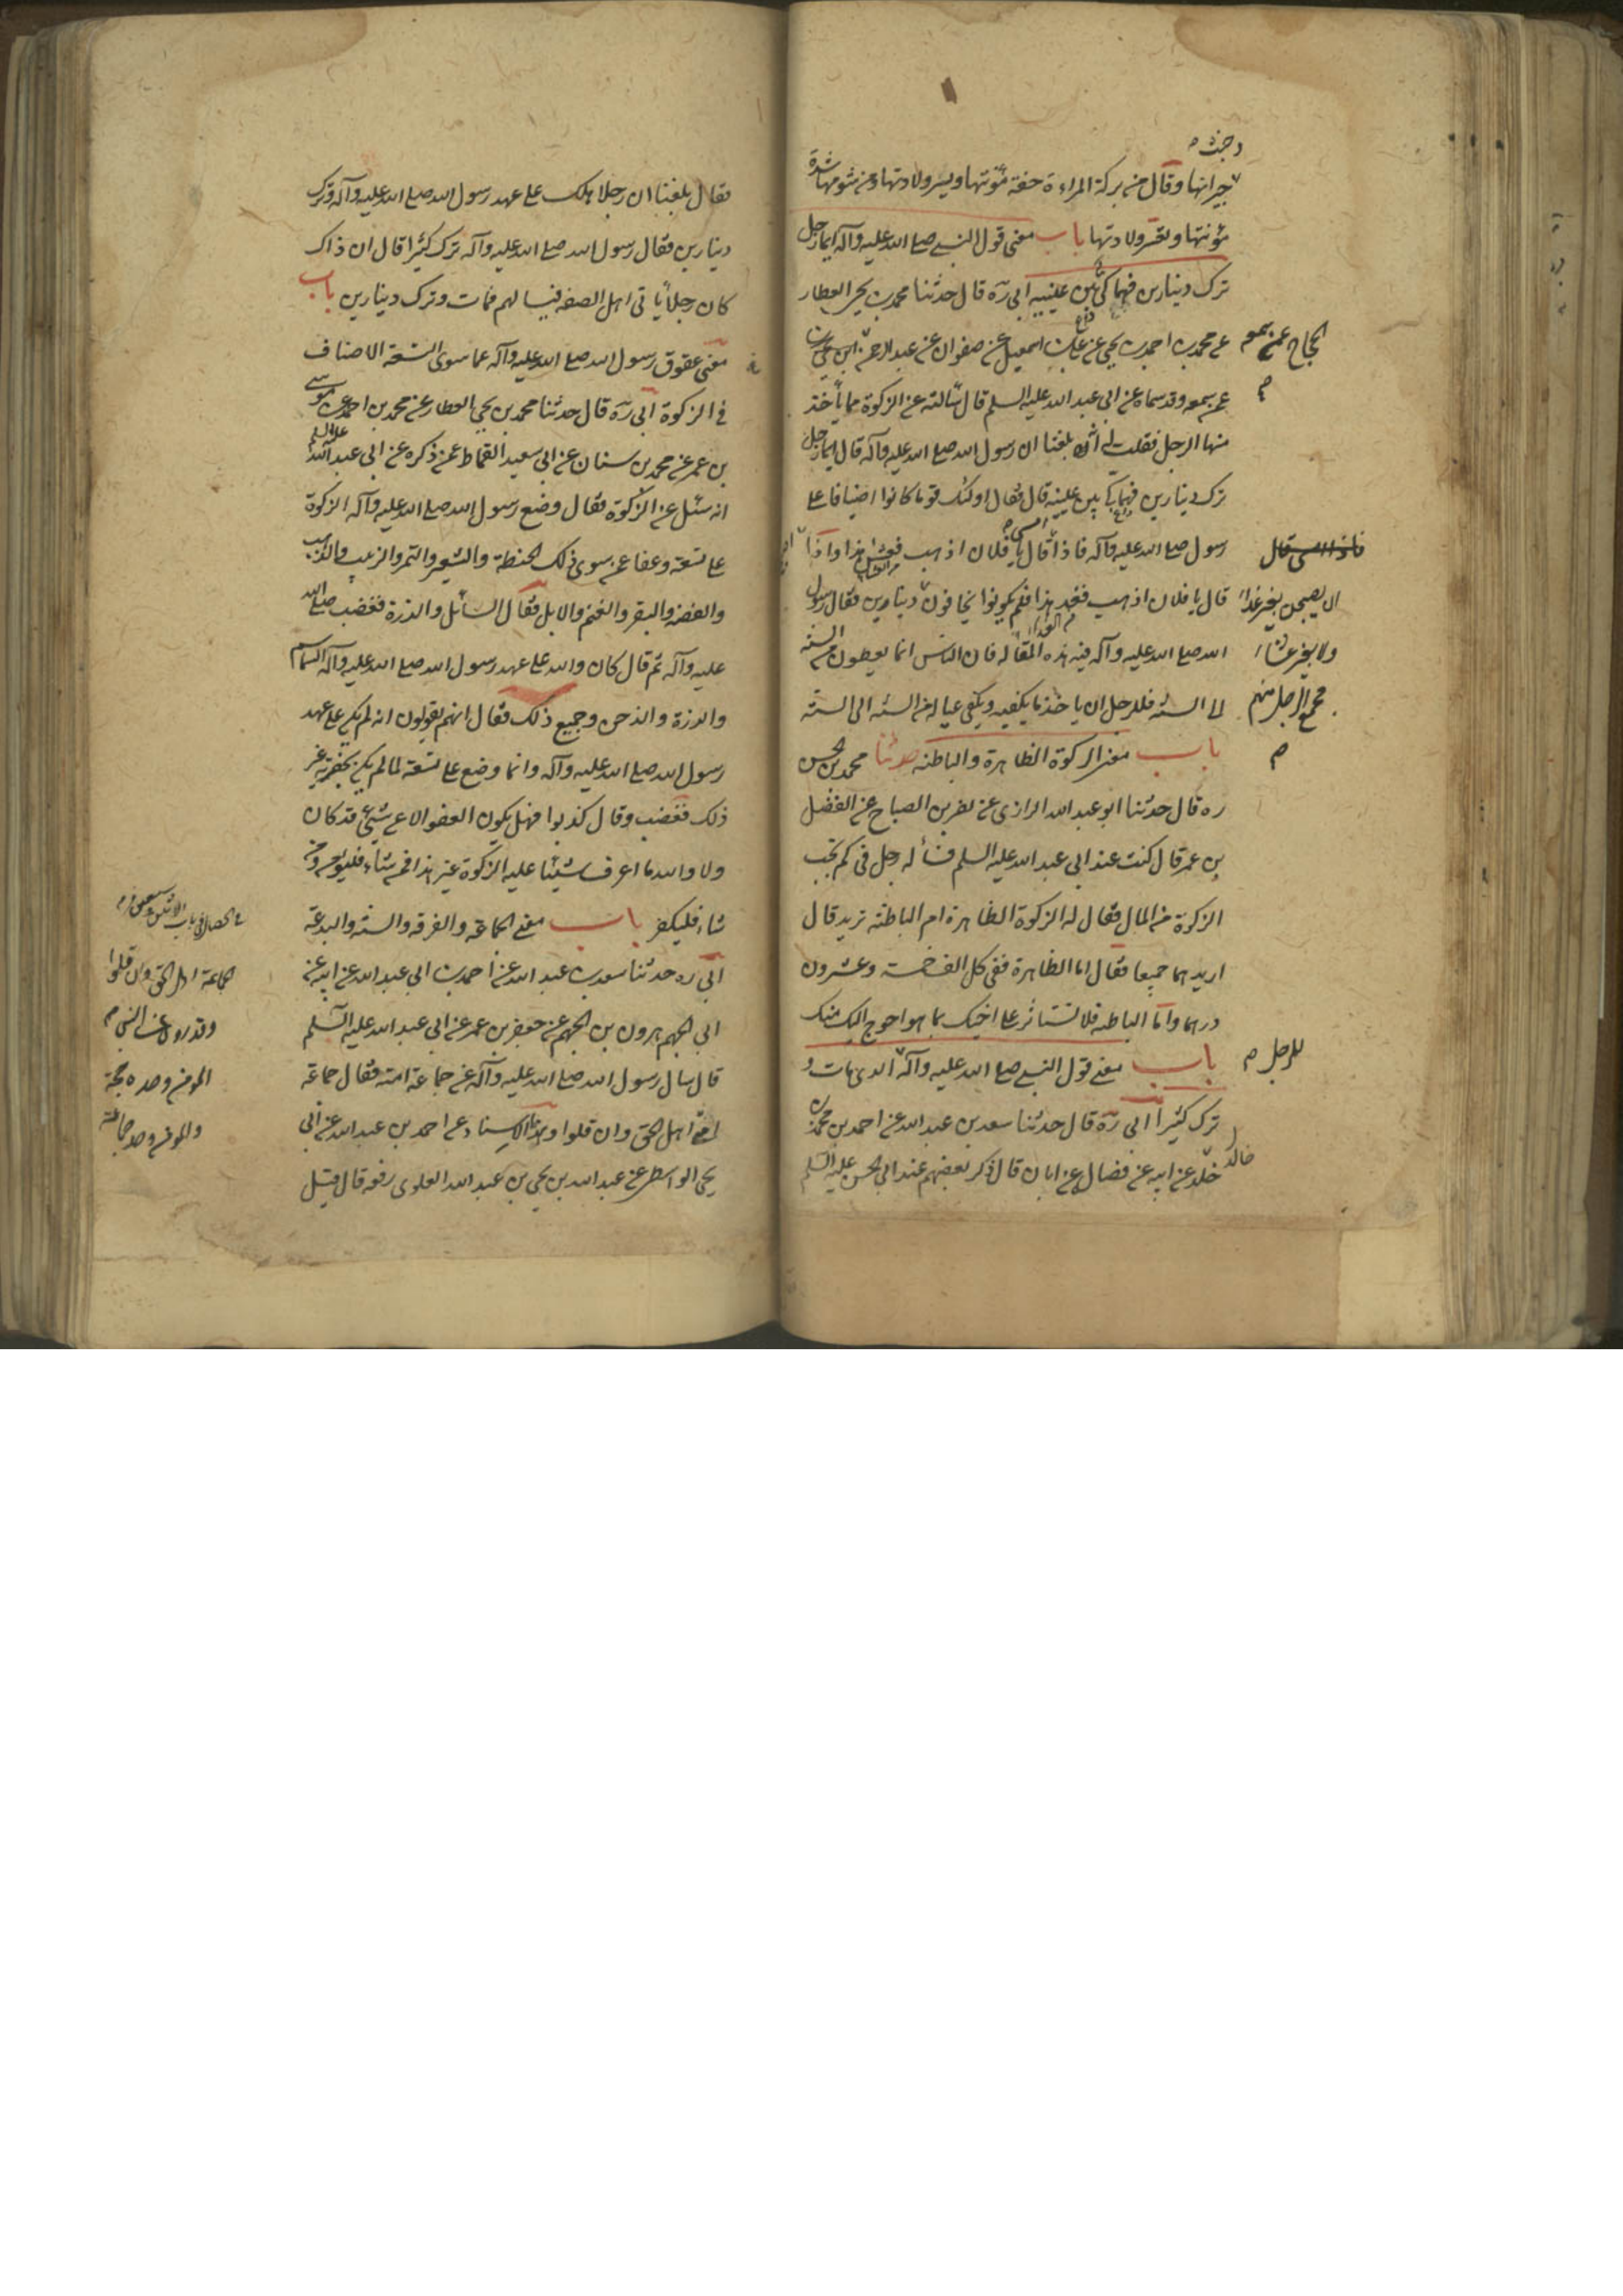 جيرانها وقال من بركة المراءة خفة مؤنتها ويسر ولادتها ومن شومها شدة
مؤنتها وتعسر ولادتها باب معنى قول النبي صلى الله عليه وآله ايما رجل
ترك دينارين فهما كي بين عينيه ابي ره قال حدثنا محمد بن يحيى العطار
عن محمد بن احمد بن يحيى عن علي بن اسمعيل عن صفوان عن عبد الرحمن بن
عمن سمعه وقد سماه عن ابي عبد الله عليه السلم قال سالته عن الزكوة ما يأخذ
منها الرجل فقلت له انه بلغنا ان رسول الله صلى الله عليه وآله قال ايما رجل
ترك دينارين فهما كي بين عينيه قال فقال اولئك قوما كانوا اضيافا على
رسول صلى الله عليه وآله فاذا قال يا فلان اذهب فعش هذا واذا
قال يا فلان اذهب فغد هذا فلم يكونوا يخافون دينارين فقال رسول
الله صلى الله عليه وآله فيه هذه المقاله فان الناس انما يعطون من السنه
الى السنه فللرجل ان ياخذ ما يكفيه ويكفي عياله من السنه الى السنه
باب معنى الزكوة الظاهرة والباطنه حدثنا محمد بن الحسن
ره قال حدثنا ابو عبد الله الرازى عن نصر بن الصباح عن الفضل
بن عمر قال كنت عند ابي عبد الله عليه السلم فسأله رجل فى كم تجب
الزكوة من المال فقال له الزكوة الظاهرة ام الباطنه تريد قال
اريدهما جميعا فقال اما الظاهرة ففى كل الف خمسة وعشرون
درهما واما الباطنه فلا تستاثر على اخيك بما هو احوج اليك منك
باب معنى قول النبي صلى الله عليه وآله الذي مات و
ترك كثيرا ابي ره قال حدثنا سعد بن عبد الله عن احمد بن محمد بن
خلد عن ابيه عن فضال عن ابان قال ذكر بعضهم عند ابي الحسن عليه السلم
الحجاج عمن سمعه
فاذا امسى قال
الا يصبحن بغير غداء
ولا بغير عشاء
فجمع الرجل منهم
للرجل م
خالد
فقال بلغنا ان رجلا هلك على عهد رسول الله صلى الله عليه وآله وترك
دينارين فقال رسول الله صلى الله عليه وآله ترك كثيرا قال ان ذاك
كان رجلا يأتى اهل الصفه فيسالهم فمات وترك دينارين باب
معنى عقوق رسول الله صلى الله عليه وآله عما سوى التسعة الاصناف
فى الزكوة ابي ره قال حدثنا محمد بن يحيى العطار عن محمد بن احمد عن موسى
بن عمر عن محمد بن سنان عن ابي سعيد القماط عمن ذكره عن ابي عبد الله عليه السلم
انه سئل عن الزكوة فقال وضع رسول الله صلى الله عليه وآله الزكوة
على تسعة وعفا عن سوى ذلك الحنطة والشعير والتمر والزبيب والذهب
والفضه والبقر والغنم والابل فقال السائل والذرة فغضب صلى الله
عليه وآله ثم قال كان والله على عهد رسول الله صلى الله عليه وآله السماسم
والذرة والدخن وجميع ذلك فقال انهم يقولون انه لم يكن على عهد
رسول الله صلى الله عليه وآله وانما وضع على تسعة لما لم يكن بحضرته غير
ذلك فغضب وقال كذبوا فهل يكون العفو الا عن شيئ قد كان
ولا والله ما اعرف شيئا عليه الزكوة غير هذا فمن شاء فليؤمن ومن
شاء فليكفر باب معنى الجماعة والفرقه والسنه والبدعة
ابي ره حدثنا سعد بن عبد الله عن احمد بن ابي عبد الله عن ابيه عن
ابي الجهم هرون بن الجهم عن حفص بن عمر عن ابي عبد الله عليه السلم
قال سال رسول الله صلى الله عليه وآله عن جماعة امته فقال جماعة
امتي اهل الحق وان قلوا وبهذا الاسناد عن احمد بن عبد الله عن ابي
يحيى الواسطى عن عبد الله بن يحيى بن عبد الله العلوى رفعه قال قيل
الجماعة اهل الحق وان قلوا
وقد روى عن النبي م
المؤمن وحده حجة
والمؤمن وحده جماعة